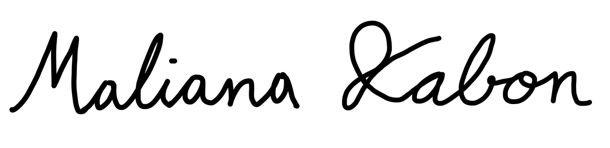 Maliana Kabon